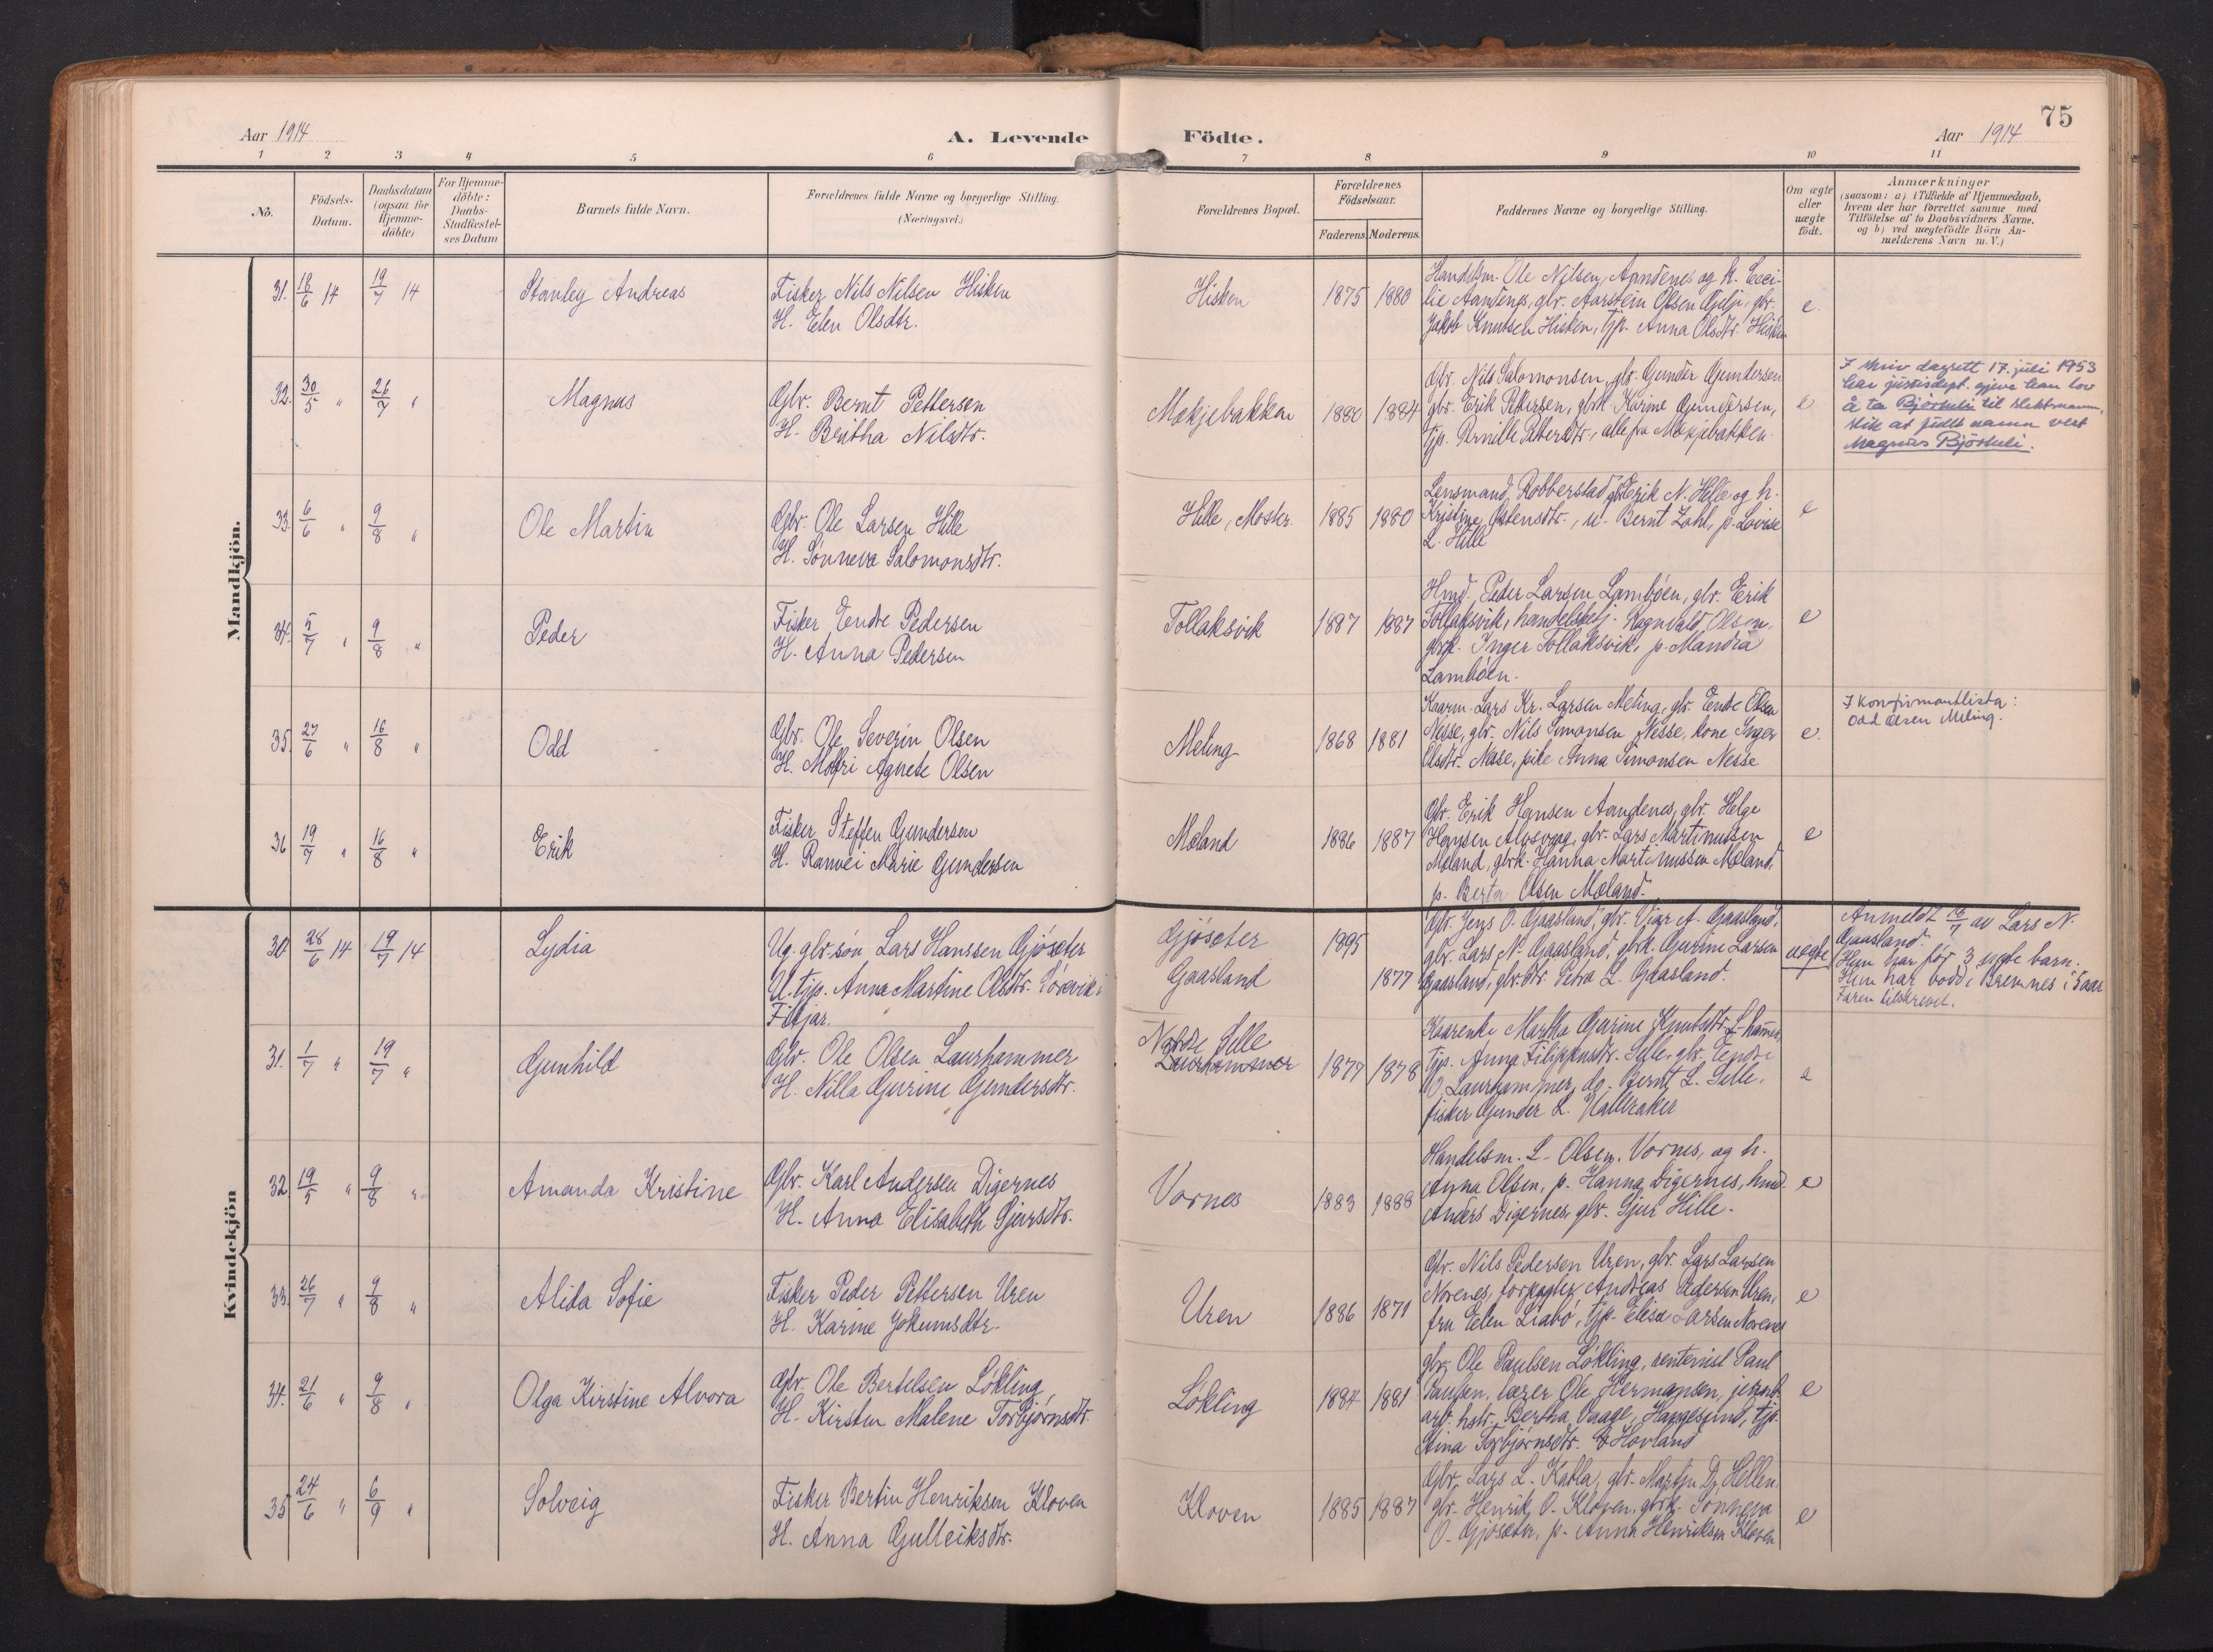 75
Aar 1914
A. Levende Födte.
Aar 1914
1 2 3 4 5 6 7 8 9 10 11
No.
Födsels-Datum.
Daabsdatum (ogsaa for Hjemme-döbte)
For Hjemme-döbte: Daabs-Stadfæstel-ses Datum
Barnets fulde Navn.
Forældrenes fulde Navne og borgerlige Stilling.
(Næringsvei.)
Forældrenes Bopæl.
Forældrenes Födselsaar.
Faderens. Moderens.
Faddernes Navne og borgerlige Stilling.
Om ægte eller uægte födt.
Anmærkninger
(saasom: a) i Tilfælde af Hjemmedaab,
hvem der har forrettet samme med
Tilföielse af to Daabsvidners Navne,
og b) ved uægtefödte Börn An-
melderens Navn m. V.)
Mandkjön.
31. 18/6 14 19/7 14 Stanley Andreas
Fisker Nils Nilsen Hisken
H. Elen Olsdtr.
Hisken 1875 1880
Handelsm. Ole Nilsen, Aandenes og h. Ceci-
lie Aandenes, gbr. Aarstein Olsen Gjelje, gbr.
Jakob Knutsen Hisken, tjp. Anna Olsdtr. Hisken
e.
32. 30/5 " 26/7 " Magnus
Gbr. Bernt Pettersen
H. Britha Nilsdtr.
Mækjebakken 1880 1884
Gbr. Nils Salomonsen, gbr. Gunder Gundersen
gbr. Erik Pettersen, gbrk. Karine Gundersen,
tjp. Pernille Pettersdtr., alle fra Mækjebakken.
e
I skriv dagsett 17. juli 1953
har justisdept. gjeve han lov
å ta Bjørkeli til slektsnamn,
slik at fullt namn vert
Magnus Bjørkeli.
33. 6/6 " 9/8 " Ole Martin
Gbr. Ole Larsen Hille
H. Sønneva Salomonsdtr.
Hille, Moster. 1885 1880
Lensmand Robberstad, gbr. Erik N. Hille og h.
Kristine Østensdtr., u. Bernt Zahl, p. Lovise
L. Hille
e
34. 5/7 " 9/8 " Peder
Fisker Endre Pedersen
H. Anna Pedersen
Tollaksvik 1887 1887
Hmd. Peder Larsen Lambøen, gbr. Erik
Tollaksvik, handelsbetj. Ragnvald Olsen,
gbrk. Inger Tollaksvik, p. Mandra
Lambøen.
e
35. 27/6 " 16/8 " Odd
Gbr. Ole Severin Olsen
H. Molfri Agnete Olsen
Meling 1868 1881
Kaarm. Lars Kr. Larsen Meling, gbr. Endre Olsen
Nesse, gbr. Nils Simonsen Nesse, kone Inger
Olsdtr. Nesse, pike Anna Simonsen Nesse
e.
I konfirmantlista:
Odd Olsen Meling.
36 19/7 " 16/8 " Erik
Fisker Steffen Gundersen
H. Ranvei Marie Gundersen
Mæland 1886 1887
Gbr. Erik Hansen Aandenes, gbr. Helge
Hansen Alvsvaag, gbr. Lars Martinussen
Mæland, gbrk. Hanna Martinussen Mæland,
p. Berta Olsen Mæland.
e
Kvindekjön
30. 28/6 14 19/7 14 Lydia
Ug. gbr. søn Lars Hanssen Gjøseter
U. tjp. Anna Martine Olsdtr. i
Fitjar.
Gjøseter 1895
Gaasland 1877
Gbr. Jens O. Gaasland, gbr. Viar A. Gaasland,
gbr. Lars N. Gaasland, gbrk. Gurine Larsen
Gaasland, gbr. dtr. Petra L. Gaasland.
uegte
Anmeldt 18/7 av Lars N.
Gaasland.
Hun har før 3 uegte barn.
Hun har bodd i Bremnes i 5 aar
Faren tilskrevet.
31. 1/7 " 19/7 " Gunhild
Gbr. Ole Olsen Laurhammer
H. Nilla Gurine Gundersdtr.
Nordre Selle
Laurhammer 1877 1878
Kaarenke Martha Gurine Knutsdtr. L-hamer,
tjp. Anna Filippusdtr. Selle, gbr. Endre
O. Laurhammer, do. Bernt L. Selle,
fisker Gunder L. Hallraker
e
32. 19/5 " 9/8 " Amanda Kristine
Gbr. Karl Andersen Digernes
H. Anna Elisabeth Sjursdtr.
Vornes 1883 1888
Handelsm. L. Olsen, Vornes, og h.
Anna Olsen, p. Hanna Digernes, hmd.
Anders Digernes, gbr. Sjur Hille.
e
33. 26/7 " 9/8 " Alida Sofie
Fisker Peder Pettersen Uren
H. Karine Jokumsdtr.
Uren 1886 1871
Gbr. Nils Pedersen Uren, gbr. Lars Larsen
Norenes, forpagter Andreas Pedersen Uren,
fru Elen Liabø, tjp. Elisa Larsen Norenes
e
34. 21/6 " 9/8 " Olga Kirstine Alvora
Gbr. Ole Bertelsen Løkling
H. Kirsten Malene Torbjørnsdtr.
Løkling 1884 1881
gbr. Ole Paulsen Løkling, rentenist Paul
Paulsen, lærer Ole Hermansen, jernb.
arb. hstr. Bertha Vaage, Haugesund, tjp.
Stina Torbjørnsdtr. Hovland
e
35. 24/6 " 6/9 " Solveig
Fisker Bertin Henriksen Kloven
H. Anna Gulleiksdtr.
Kloven 1885 1887
Gbr. Lars L. Katla, gbr. Martin D. Hellen,
gbr. Henrik O. Kloven, gbrk. Sønneva
O. Gjøseter, p. Anna Henriksen Kloven
e